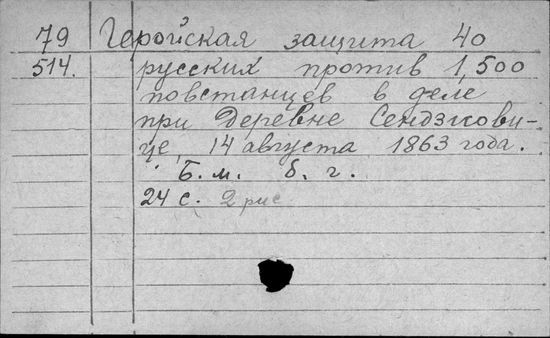 79 Геройская защита 40
514. русских против 1,500
повстанцев в деле
при деревне Сендзкови-
це, 14 августа 1863 года.
Б. м. б. г.
24 с. 2 рис